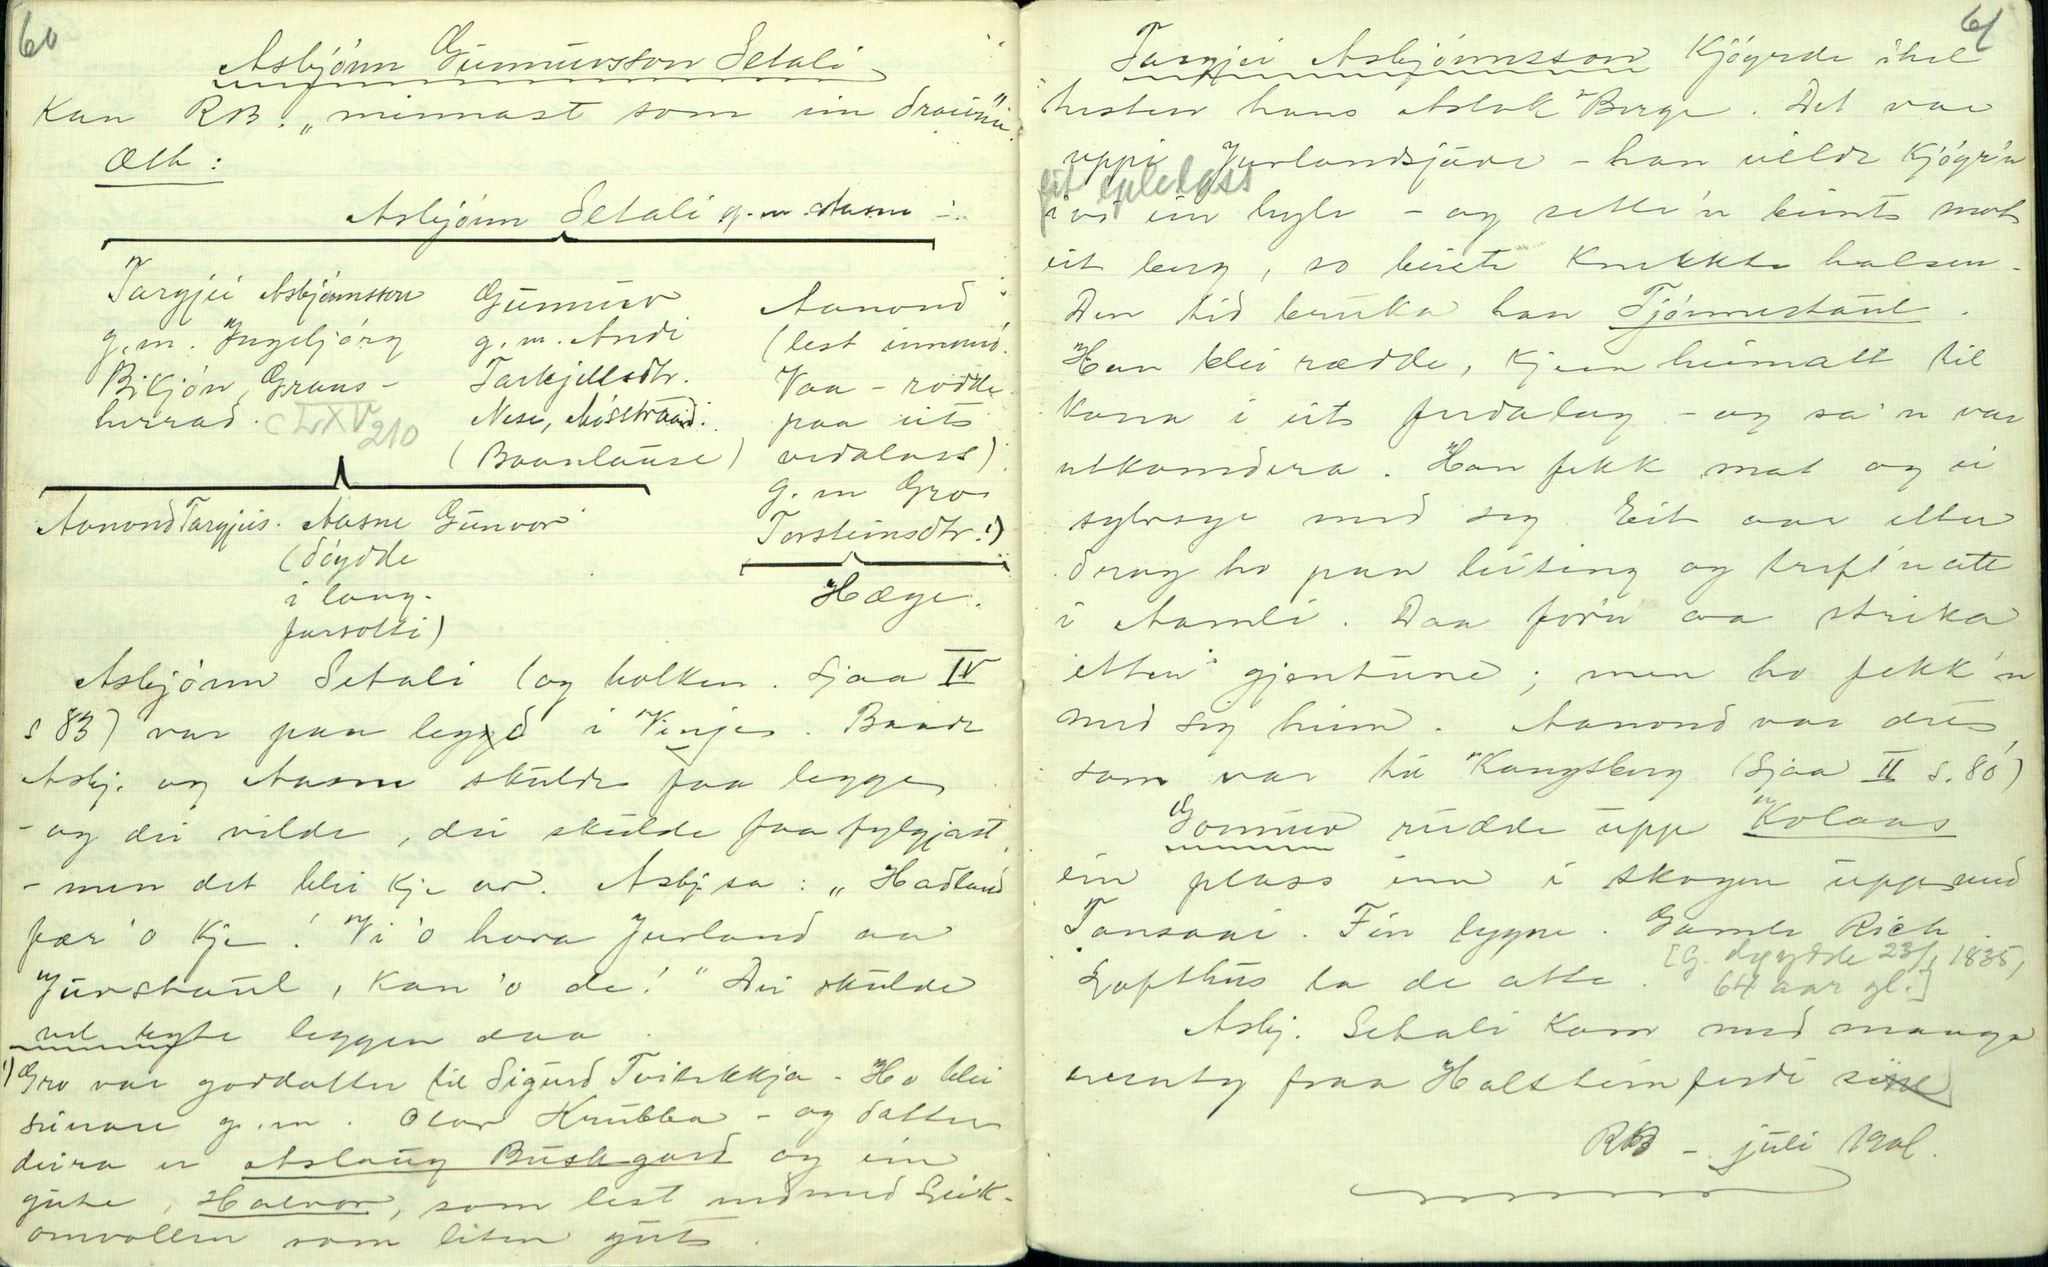 60
Asbjónn Gunnuvsson Setali
Kan RB. „minnast som ein draum"
Ætt:
Asbjónn Setali g.m. Aasne
Targjei Asbjónnsson
g.m. Ingebjórg
Bikjón, Grans-
herrad. CLXV 210
Gunnuv
g.m. Andi
Tarkjellsdtr.
Nese, Móstrand.
(Baanlause)
Aanond
(lest innund.
Vaa - rodde
paa eit
vedalass)
g.m Gro
Torsteinsdtr. 1)
Aanond Targjeis. Aasne Gunvor
(dóydde
i lang-
farsotti)
Hæge.
Asbjónn Setali (og bolken. Sjaa IV
s 83) var paa legd i Vinje. Baade
Asbj. og Aasne skulde faa legge
- og dei vilde, dei skulde faa fylgjast,
- men det blei kje av. Asbj. sa: „Hadland
fær 'o kje! Vi 'o hava Jurland aa
Jurstaul, kan 'o de!" Dei skulde
vel byte leggen daa.
1) Gro var goddotter til Sigurd Tveitekkja - Ho blei
seinare g.m. Olav Krubba - og dotter
deira er Aslaug Buskgard og ein
gute, Halvor, som lest nedmed Leik-
omvollen som liten gut.
61
Targjei Asbjónnsson kjóyrde ihel
hesten hans Aslak Berge. Det var
uppi Jurlandsjuvi - han vilde kjóyr'n
eit epleloss
ivi ein byle - og sette'n beint mot
eit berg, so beiste knekkte halsen.
Den tid bruka han Tjónnestaul.
Han blei rædde, kjem heimatt til
kona i eit ferdalag - og sa'n var
utkomdera. Han fekk mat og ei
sylvsye med seg. Eit aar etter
drog ho paa leiting og treft'n att
i Aamli. Daa fór'n aa strika
etter gjentune; men ho fekk'n
med seg heim. Aanond var dei
som var til Kongsberg (Sjaa II s. 80)
Gonnuv rudde upp Kolaas
ein plass inn i skogen uppmed
Tansaai. Fin bygne. Gamle Rich.
Lofthus la de atte. [G. dóydde 23/1 1835,
64 aar gl.]
Asbj. Setali kom med mange
eventy fraa Holstein ferdi si
RB - juli 1901.